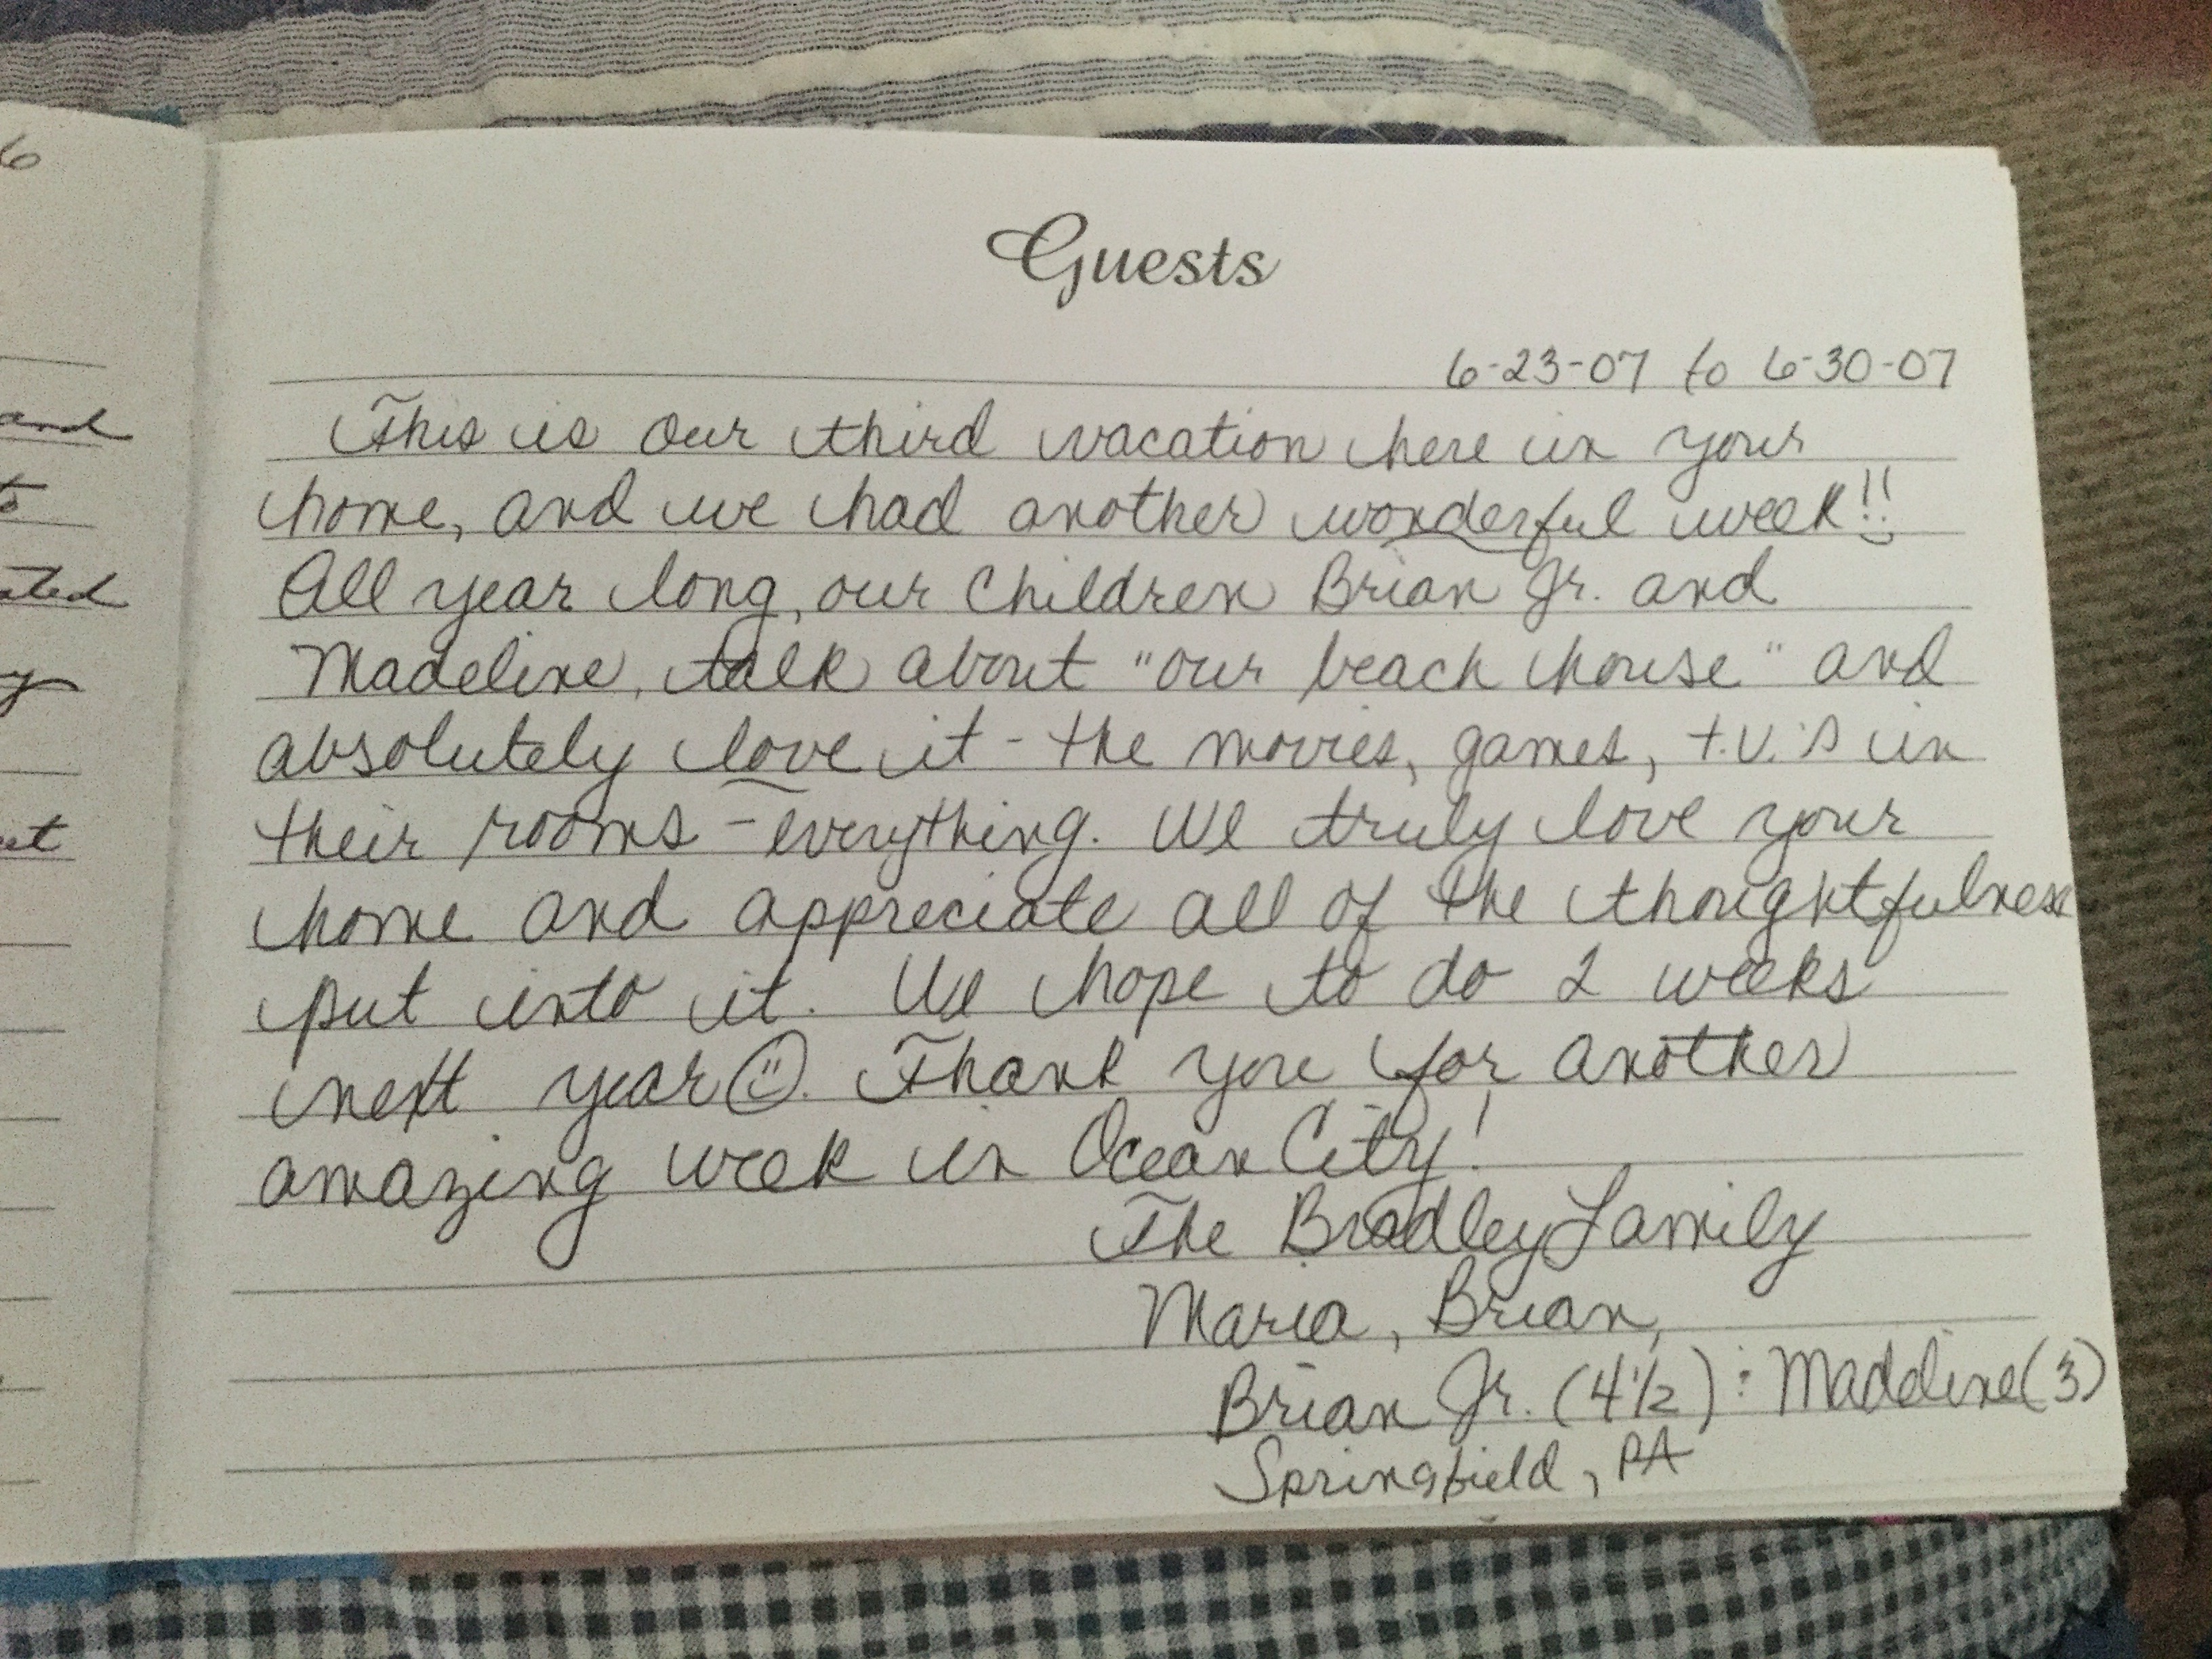 Guests
6-23-07 to 6-30-07
This is our third vacation here in your
home, and we had another wonderful week!!
All year long, our children Brian Jr. and
Madeline, talk about "our beach house" and
absolutely love it - the movies, games, t.v.'s in
their rooms - everything. We truly love your
home and appreciate all of the thoughtfulness
put into it. We hope to do 2 weeks
next year☺. Thank you for another
amazing week in Ocean City!
The Bradley Family
Maria, Brian,
Brian Jr. (4½) : Madeline (3)
Springfield, PA
6
and
to
ated
y